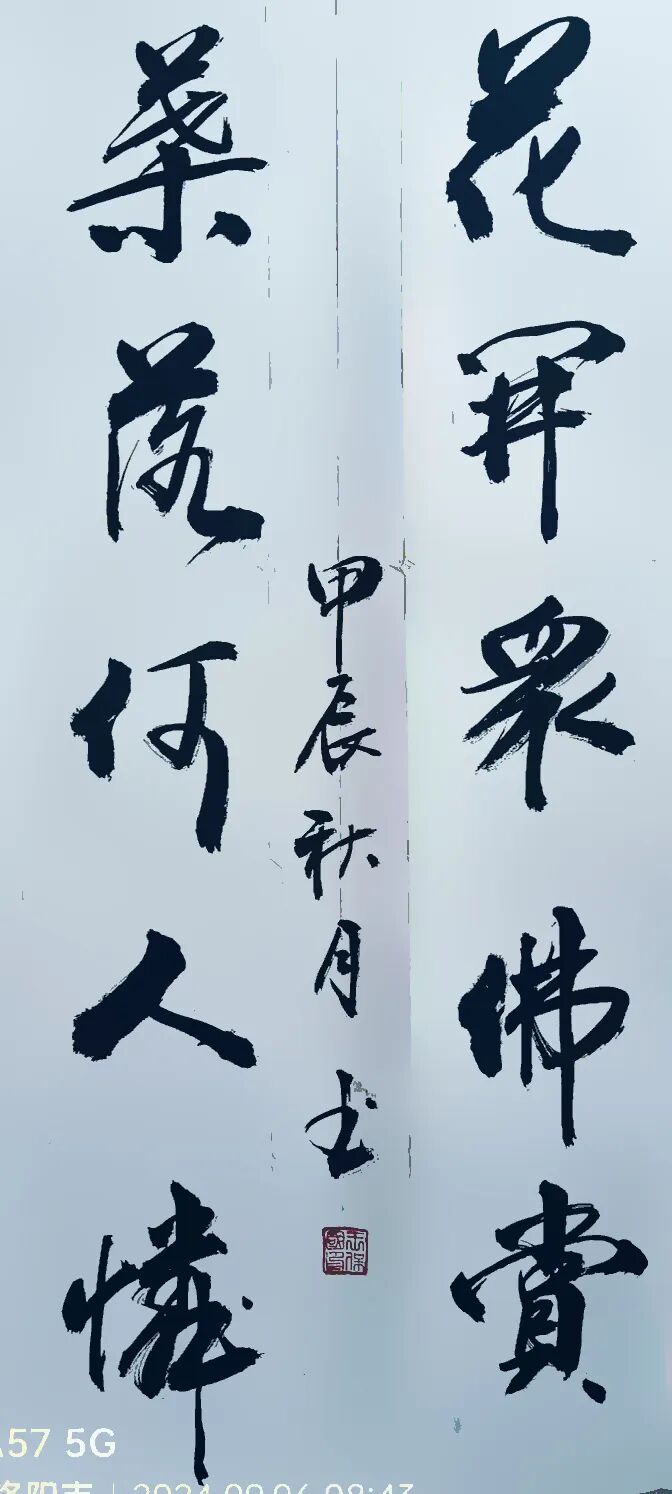 花開眾佛賞
葉落何人憐
甲辰秋月书
A57 5G
洛阳市 | 2024.09.06 08:43